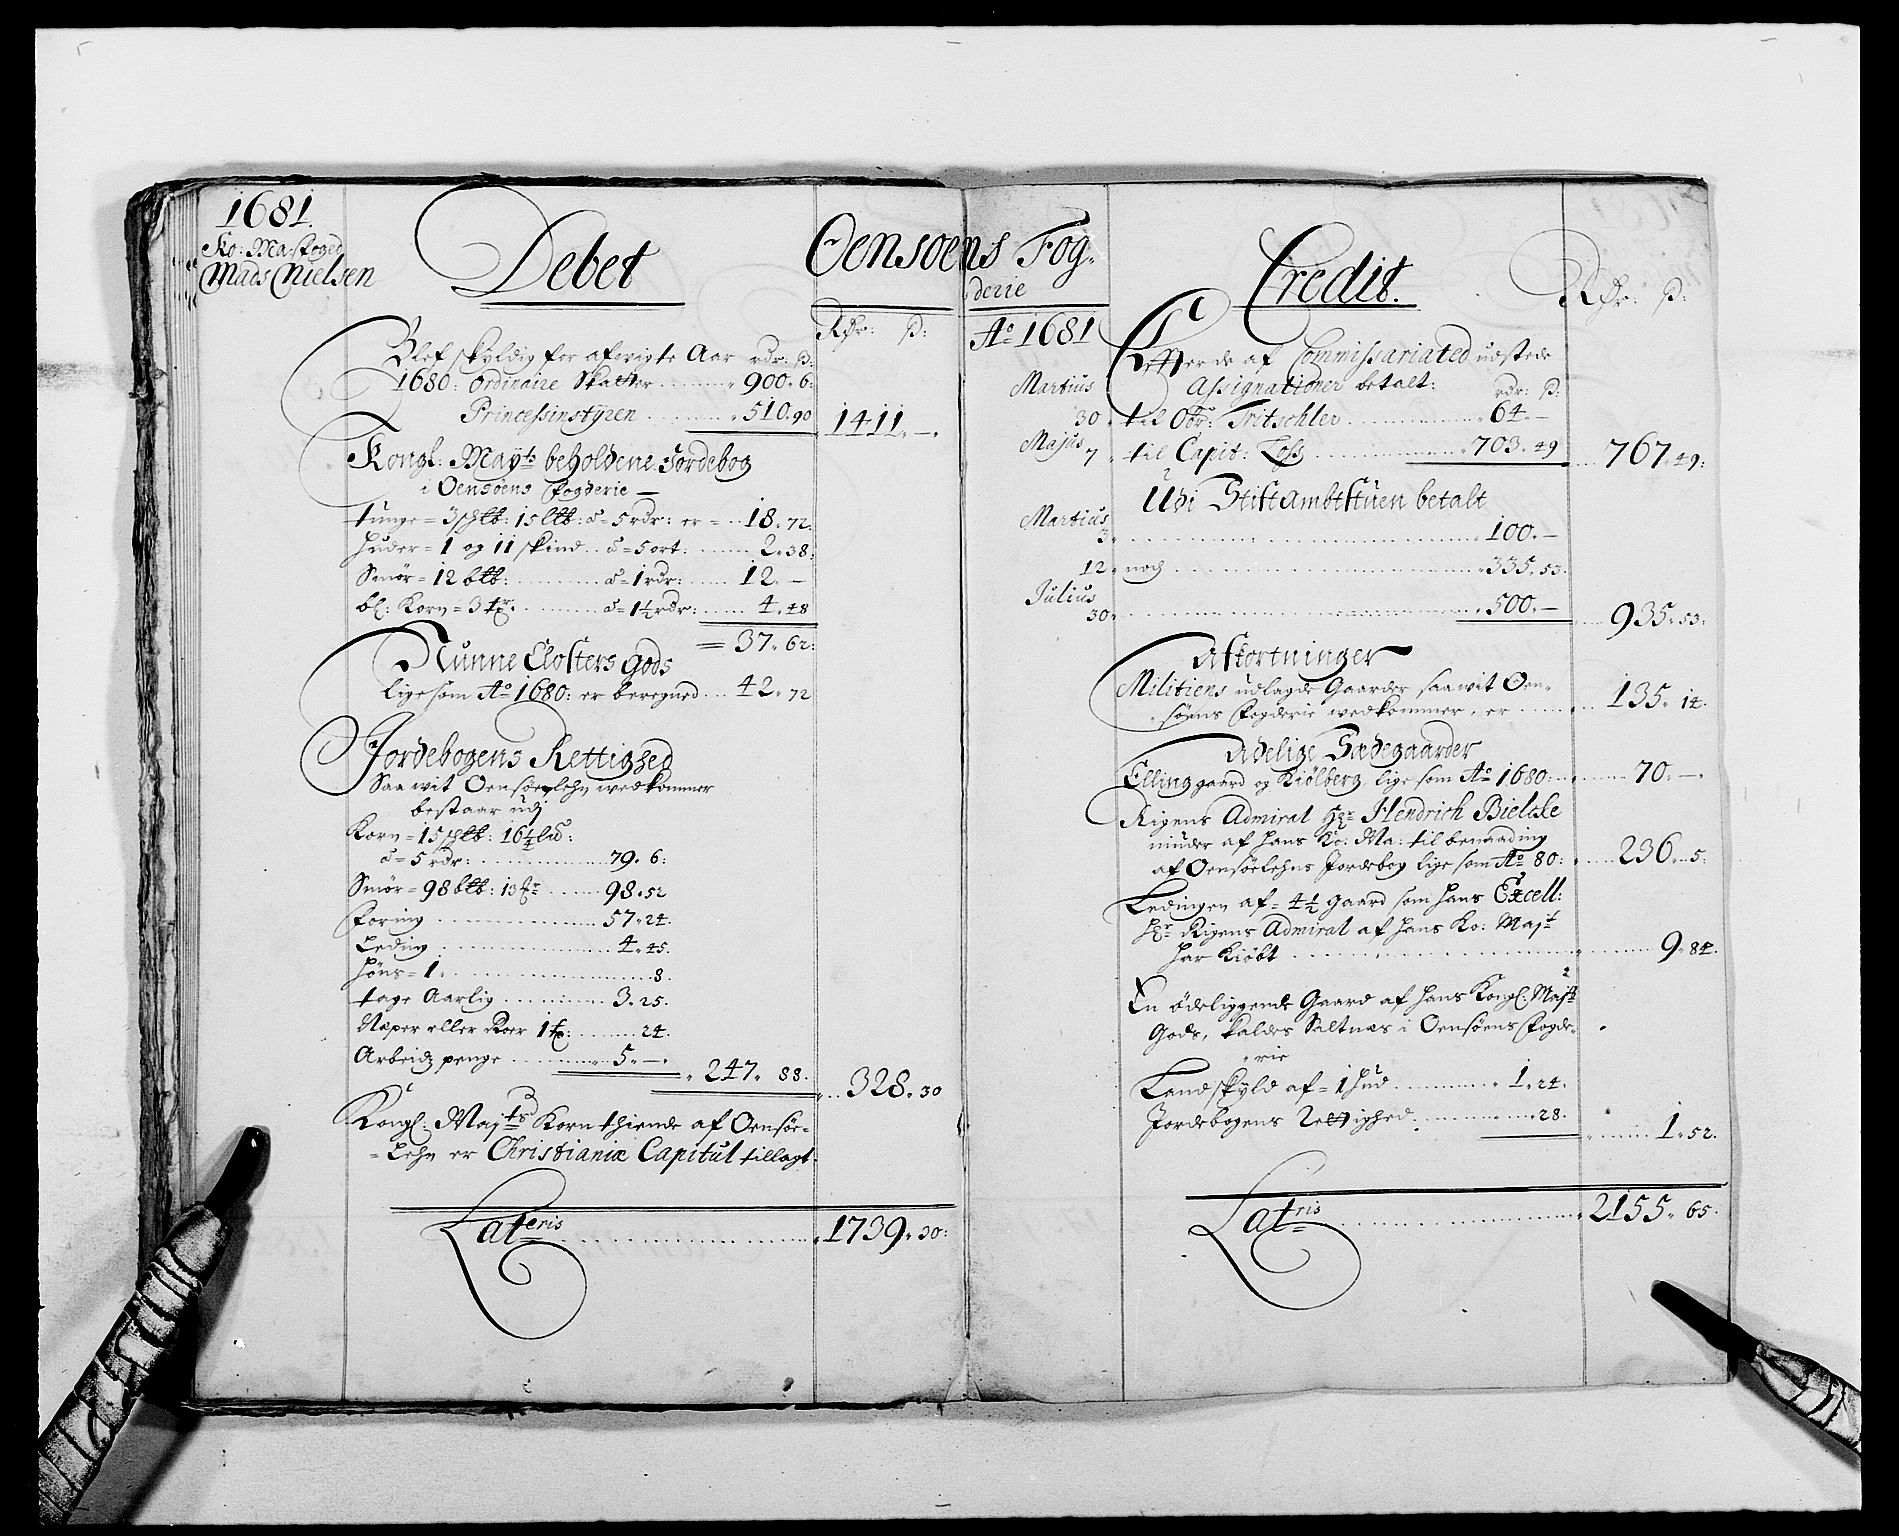 1681.
Ko: Ma: foged
Mads Nielsen
Debet
Oensøens Fog-
derie
Rdr: ß:
Blef skyldig for afwigte Aar rdr: ß:
1680: ordinaire Skatter ......... 900. 6:
Princessinstÿren ......... 510. 90
1411. —.
Kongl: Mayts beholdene Jordebog
i Oensøens fogderie —
tunge = 3 sktb: 15 ltb: a = 5 rdr: er = .. 18. 72:
huder = 1 og 11 skind .. a = 5 ort: ....... 2. 38:
Smør = 12 btb: ......... a = 1 rdr: ...... 12. —
bl: Korn = 3 tr. ......... a = 1½ rdr: ...... 4. 48
= 37. 62:
Nunne Closters gods
lige som Ao 1680: er beregned ... 42. 72
Jordebogens Rettighed
Saa wit Oensøe lehn wedkommer
bestaar udj
Korn = 15 sktb: 16½ ltb:
a = 5 rdr: ......... 79. 6:
Smør = 98 btb: 13 ........ 98. 52
foring ......... 57. 24.
Leding ......... 4. 45.
høns = 1. ......... 8.
tage Aarlig ......... 3. 25.
Næper eller Roer 1 tr: ......... 24.
Arbeidz penge ......... 5. —.
247. 88.
328. 30
Kongl: Majts Korn thiende af Oensøe-
= Lehn er Christianiæ Capitul tillagt.
Lateris ......... 1739. 30:
Ao 1681
Credit.
Rdr: ß:
Efterde af Commissariated udstede
Assignationer betalt: rdr: ß:
Martius
30. til Obr: Tritschler ......... 64. —
Majus
7. til Capit: Loss ......... 703. 49
767. 49:
Udi Stiftambtstuen betalt
Martius
3. ......... 100. —
12. noch ......... 335. 53.
Julius
30. ......... 500. —
935. 53:
Afkortninger
Militiens udlagde Gaarder saawit Oen-
søens fogderie wedkommer, er ...... 135. 14.
Adelige Sædegaarder
Elling gaard og Kiølberg, lige som Ao 1680: ...... 70. —.
Rigens Admiral Hr Hendrich Bielcke
niuder af hans Ko: Ma: til benaading
af Oensøelehns Jordebog lige som Ao 80: ..... 236. 5:
Ledingen af = 4½ gaard som hans Excell:
Hr Rigens Admiral af hans Ko: Majt
har kiøbt ......... 9. 84.
En ødeliggende Gaard af hans Kongl: Majts
Gods, kaldes Saltnæs i Oensøens fogde-
rie
Landskyld af = 1 hud ......... 1. 24.
Jordebogens Rettighed ......... 28.
1. 52.
Latris ......... 2155. 65.